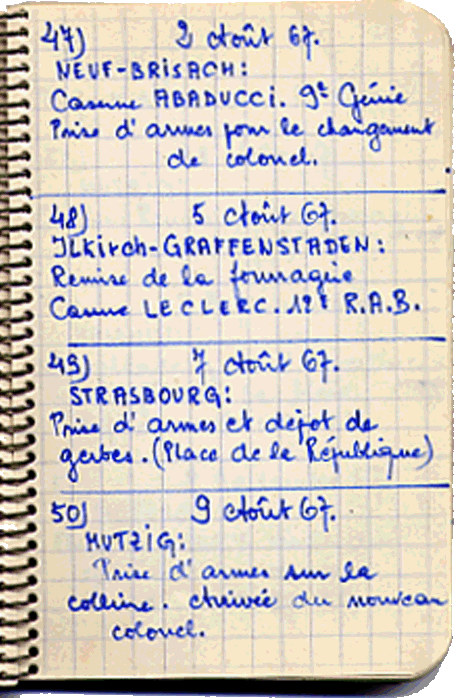 47) 2 Août 67.
NEUF-BRISACH:
Caserne ABADUCCI. 9e Génie
Prise d'armes pour le changement
de colonel.
48) 5 Août 67.
ILKirch-GRAFFENSTADEN:
Remise de la fourragère
Caserne LECLERC. 12e R.A.B.
49) 7 Août 67.
STRASBOURG:
Prise d'armes et dépot de
gerbes. (Place de la République)
50) 9 Août 67.
MUTZIG:
Prise d'armes sur la
colline. Arrivée du nouveau
colonel.